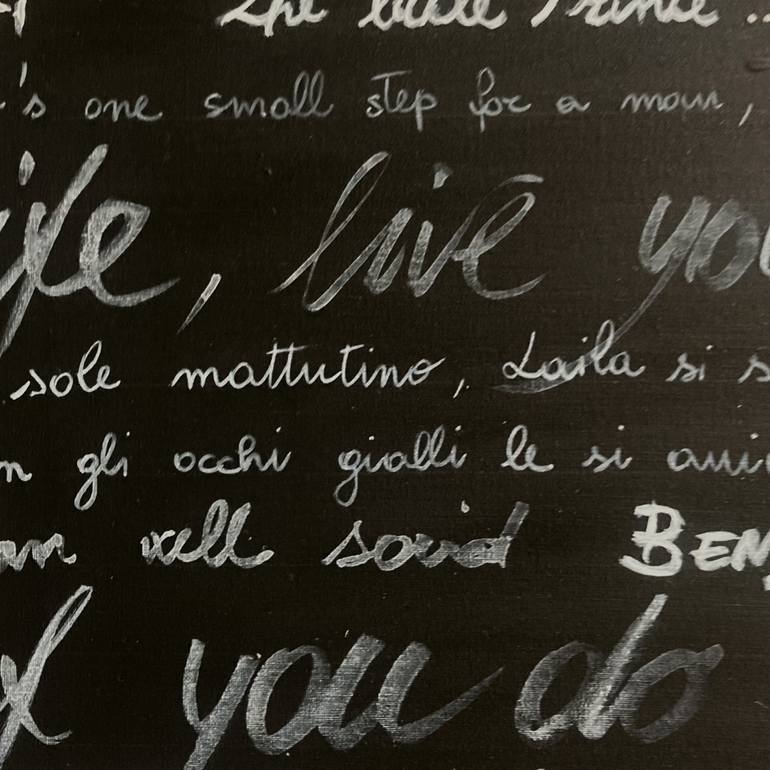 The little Prince ..
's one small step for a man,
ife, live you
sole mattutino, Laila si s
n gli occhi gialli le si avvic
an well said BEN
you do